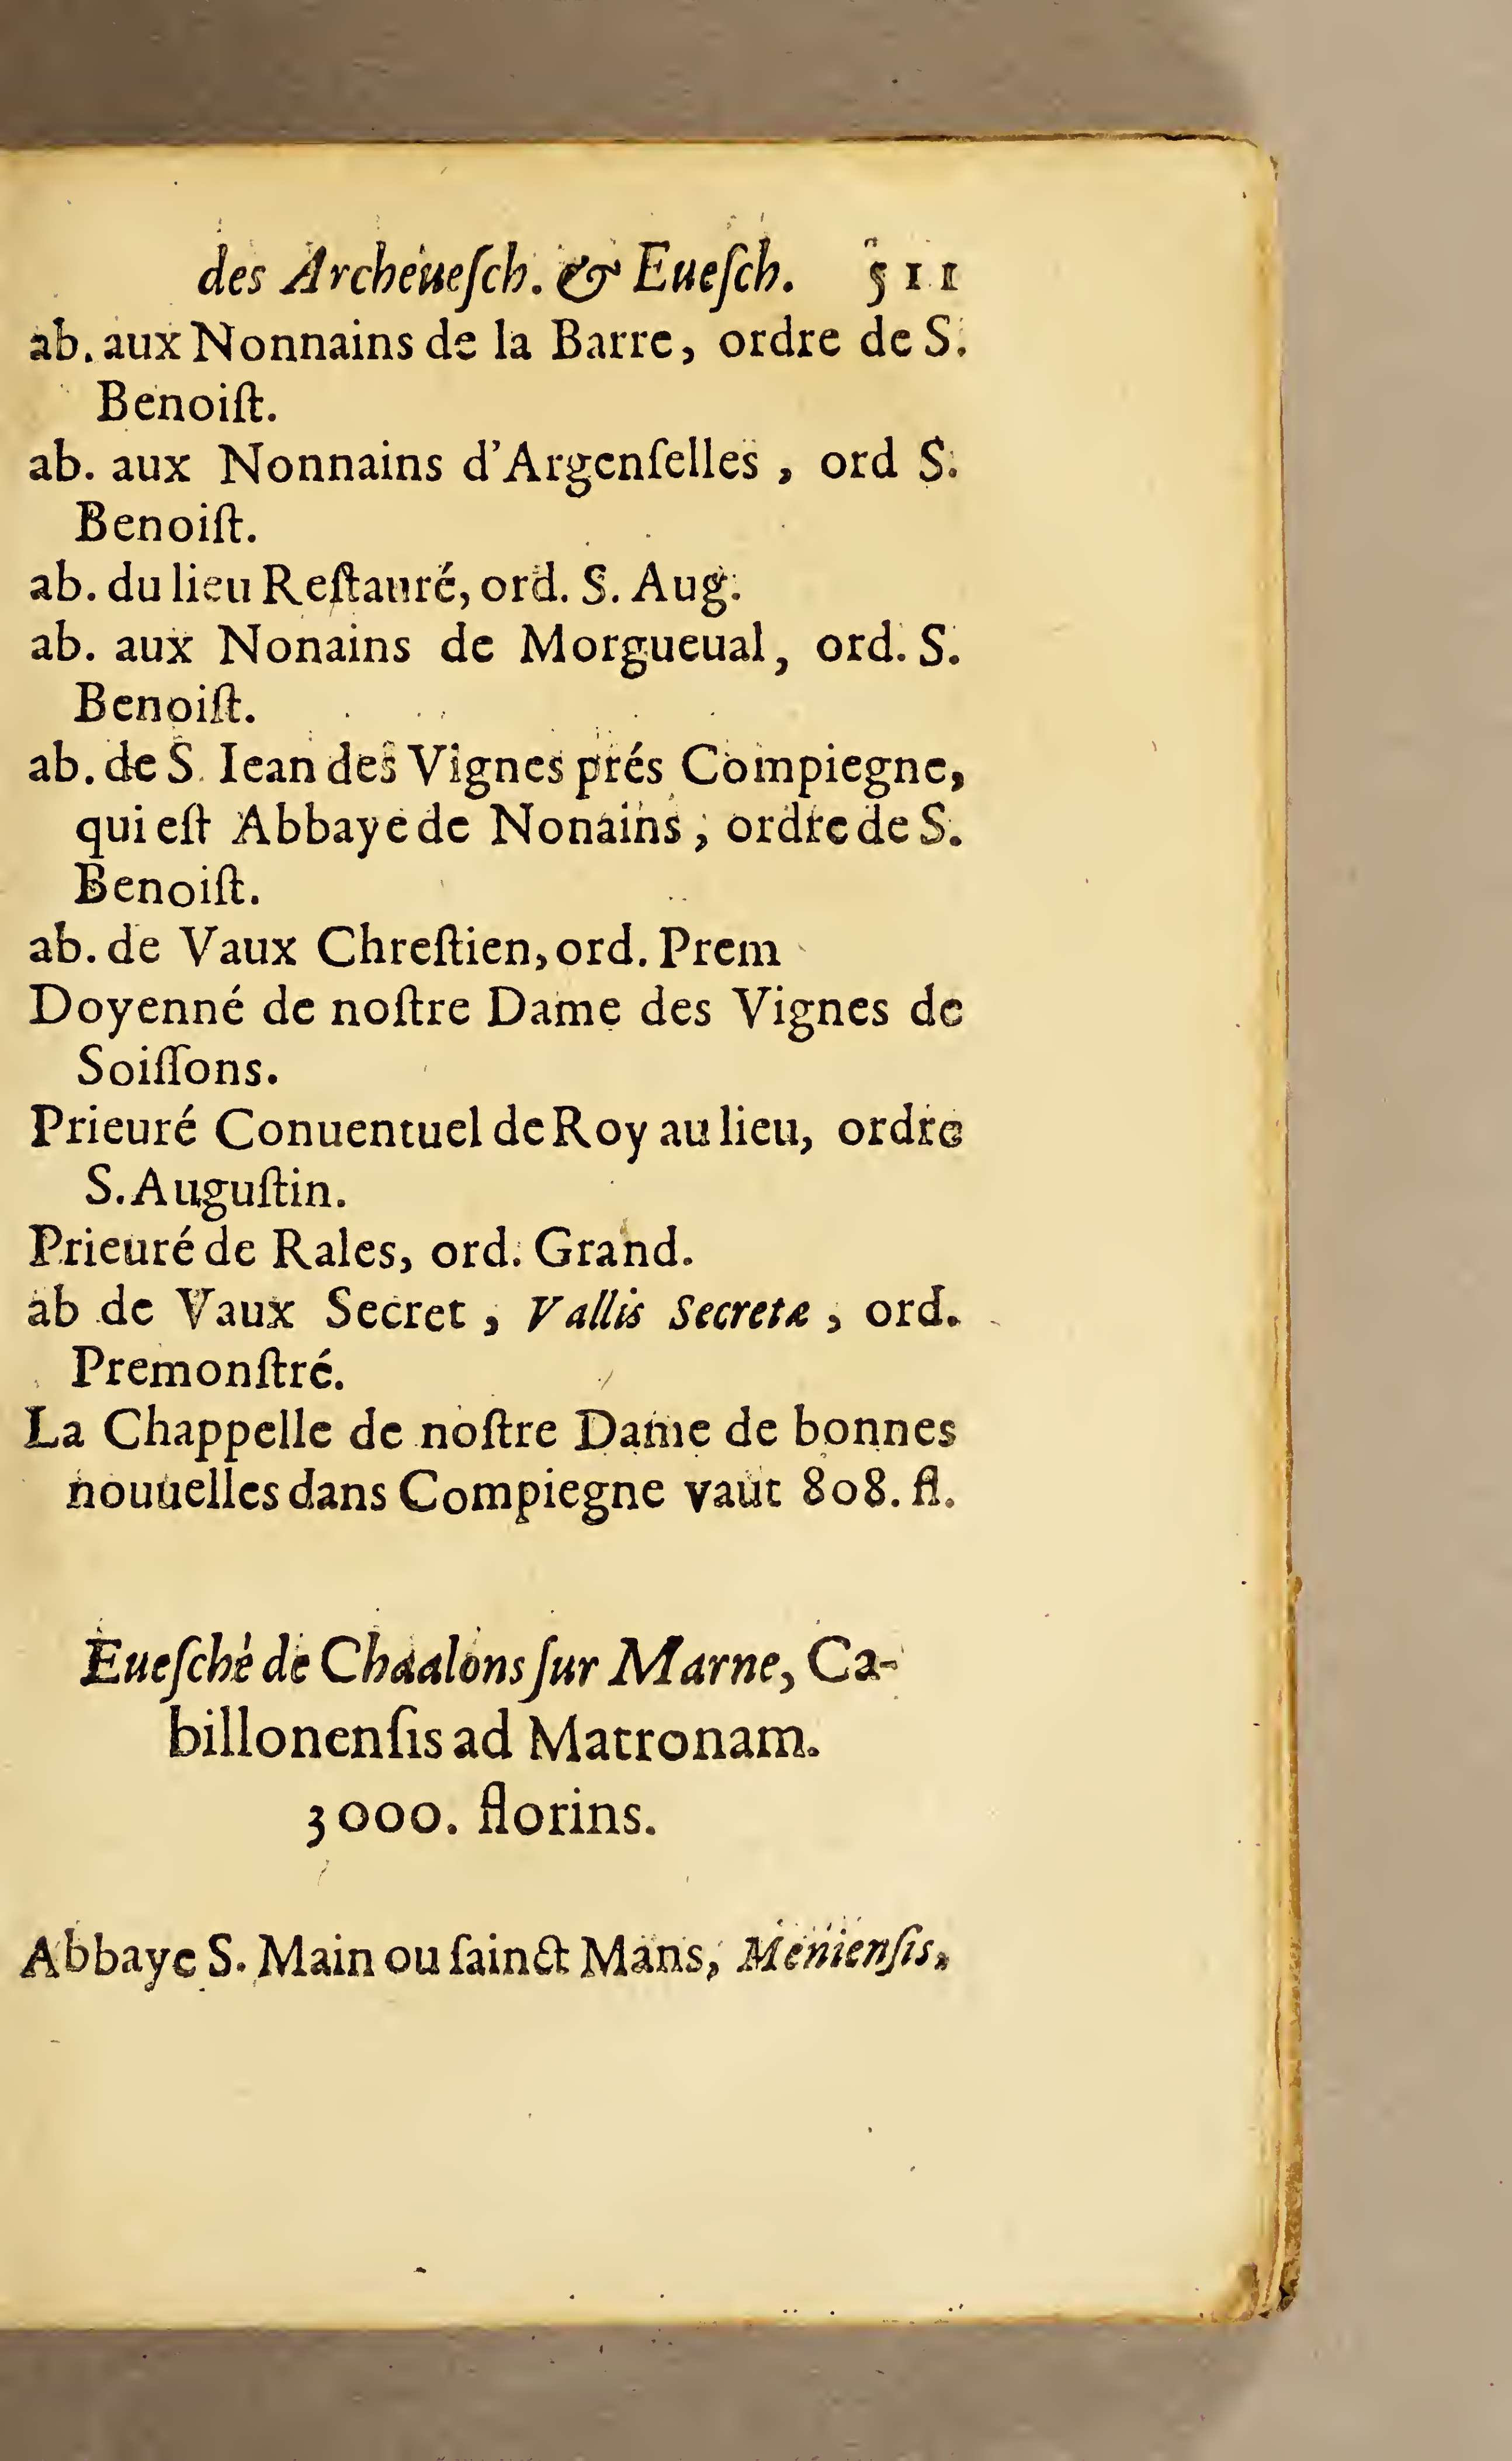 des Archeueſch. & Eueſch. 511
ab. aux Nonnains de la Barre, ordre de S.
Benoiſt.
ab. aux Nonnains d'Argenſelles, ord S.
Benoiſt.
ab. du lieu Reſtauré, ord. S. Aug.
ab. aux Nonains de Morgueual, ord. S.
Benoiſt.
ab. de S. Iean des Vignes prés Compiegne,
qui eſt Abbaye de Nonains, ordre de S.
Benoiſt.
ab. de Vaux Chreſtien, ord. Prem
Doyenné de noſtre Dame des Vignes de
Soiſſons.
Prieuré Conuentuel de Roy au lieu, ordre
S. Auguſtin.
Prieuré de Rales, ord. Grand.
ab de Vaux Secret, Vallis Secretæ, ord.
Premonſtré.
La Chappelle de noſtre Dame de bonnes
nouuelles dans Compiegne vaut 808. fl.
Eueſché de Chaalons ſur Marne, Ca-
billonenſis ad Matronam.
3000. florins.
Abbaye S. Main ou ſainct Mans, Menienſis,